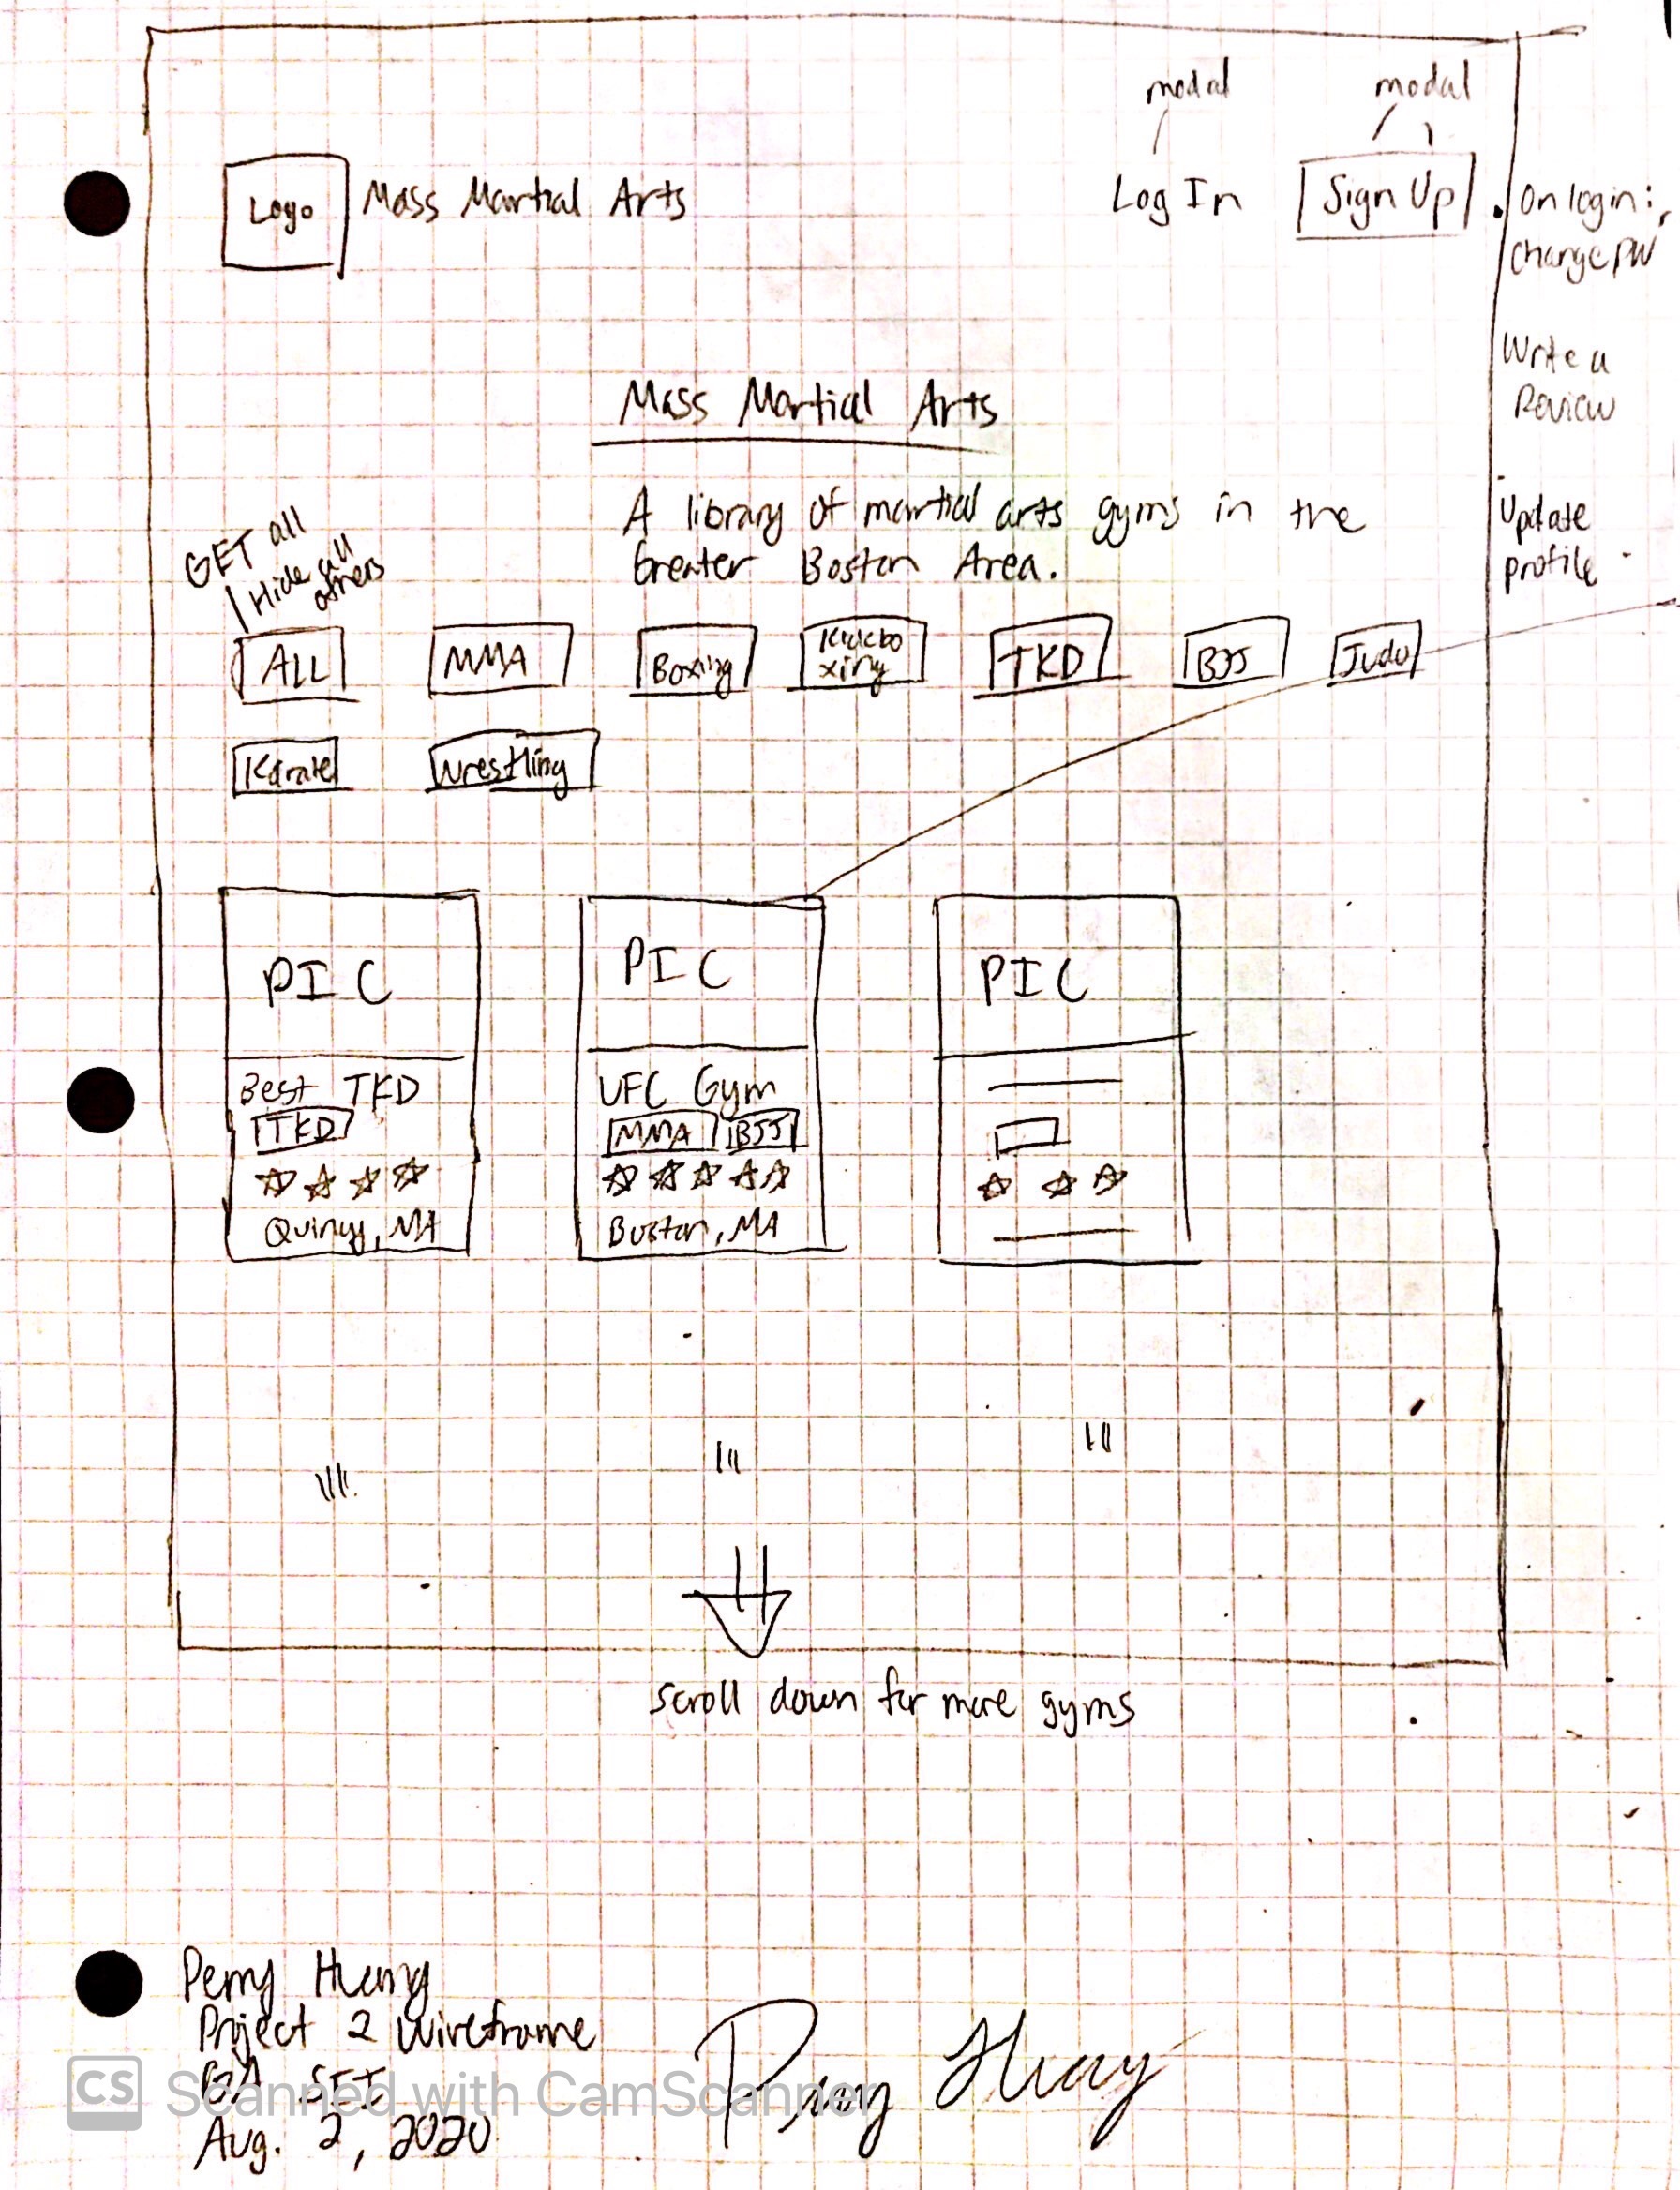 modal modal
Logo Mass Martial Arts Log In Sign Up
On login:
Change PW
Write a
Review
Update
profile
Mass Martial Arts
A library of martial arts gyms in the
Greater Boston Area.
GET all
Hide all
others
ALL MMA Boxing Kickbo
xing TKD BJJ Judo
Karate Wrestling
PIC PIC PIC
Best TKD UFC Gym
TKD MMA BJJ
Quincy, MA Boston, MA
scroll down for more gyms
Perry Huang
Project 2 Wireframe
GA SEI
Aug. 2, 2020
Perry Huang
CS Scanned with CamScanner